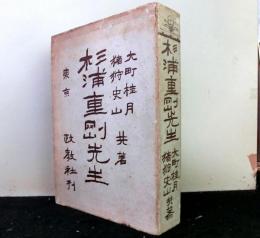 大町桂月
猪狩史山 共著
杉浦重剛先生
東京 政教社刊
杉浦重剛先生
大町桂月
猪狩史山 共著